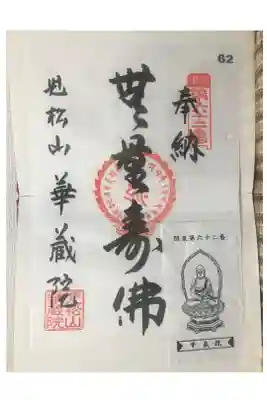 62
奉納
無量寿佛
児松山 華蔵院
関東第六十二番
華蔵院